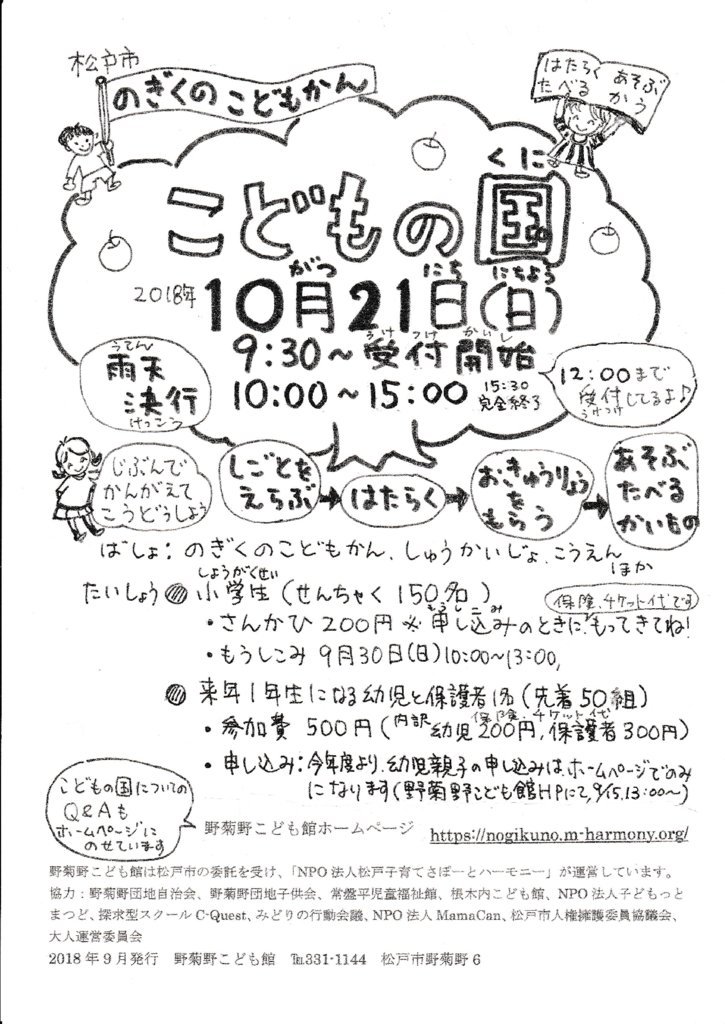 松戸市
のぎくのこどもかん
はたらく あそぶ
たべる かう
くに
こどもの国
がつ にち にちよう
2018年 10月21日(日)
うけつけ かいし
9:30~受付開始
10:00~15:00 15:30 完全終了
うてん
雨天
決行
けっこう
12:00まで
受付してるよ♪
うけつけ
じぶんで
かんがえて
こうどうしよう
しごとを
えらぶ
はたらく
おきゅうりょう
を
もらう
あそぶ
たべる
かいもの
ばしょ:のぎくのこどもかん、しゅうかいじょ、こうえん
ほか
しょうがくせい
たいしょう 小学生(せんちゃく150名)
保険、チケット代です
もうしこみ
・さんかひ 200円 ※申し込みのときにもってきてね!
・もうしこみ 9月30日(日)10:00~13:00,
来年1年生になる幼児と保護者1名(先着50組)
保険、チケット代
・参加費 500円(内訳 幼児200円,保護者300円)
・申し込み:今年度より、幼児親子の申し込みはホームページでのみ
になります(野菊野こども館HPにて,9/15,13:00~)
こどもの国についての
Q&Aも
ホームページに
のせています
野菊野こども館ホームページ https://nogikuno.m-harmony.org/
野菊野こども館は松戸市の委託を受け、「NPO法人松戸子育てさぽーとハーモニー」が運営しています。
協力:野菊野団地自治会、野菊野団地子供会、常盤平児童福祉館、根木内こども館、NPO法人子どもっと
まつど、探求型スクールC-Quest、みどりの行動会議、NPO法人MamaCan、松戸市人権擁護委員協議会、
大人運営委員会
2018年9月発行 野菊野こども館 ℡331-1144 松戸市野菊野6